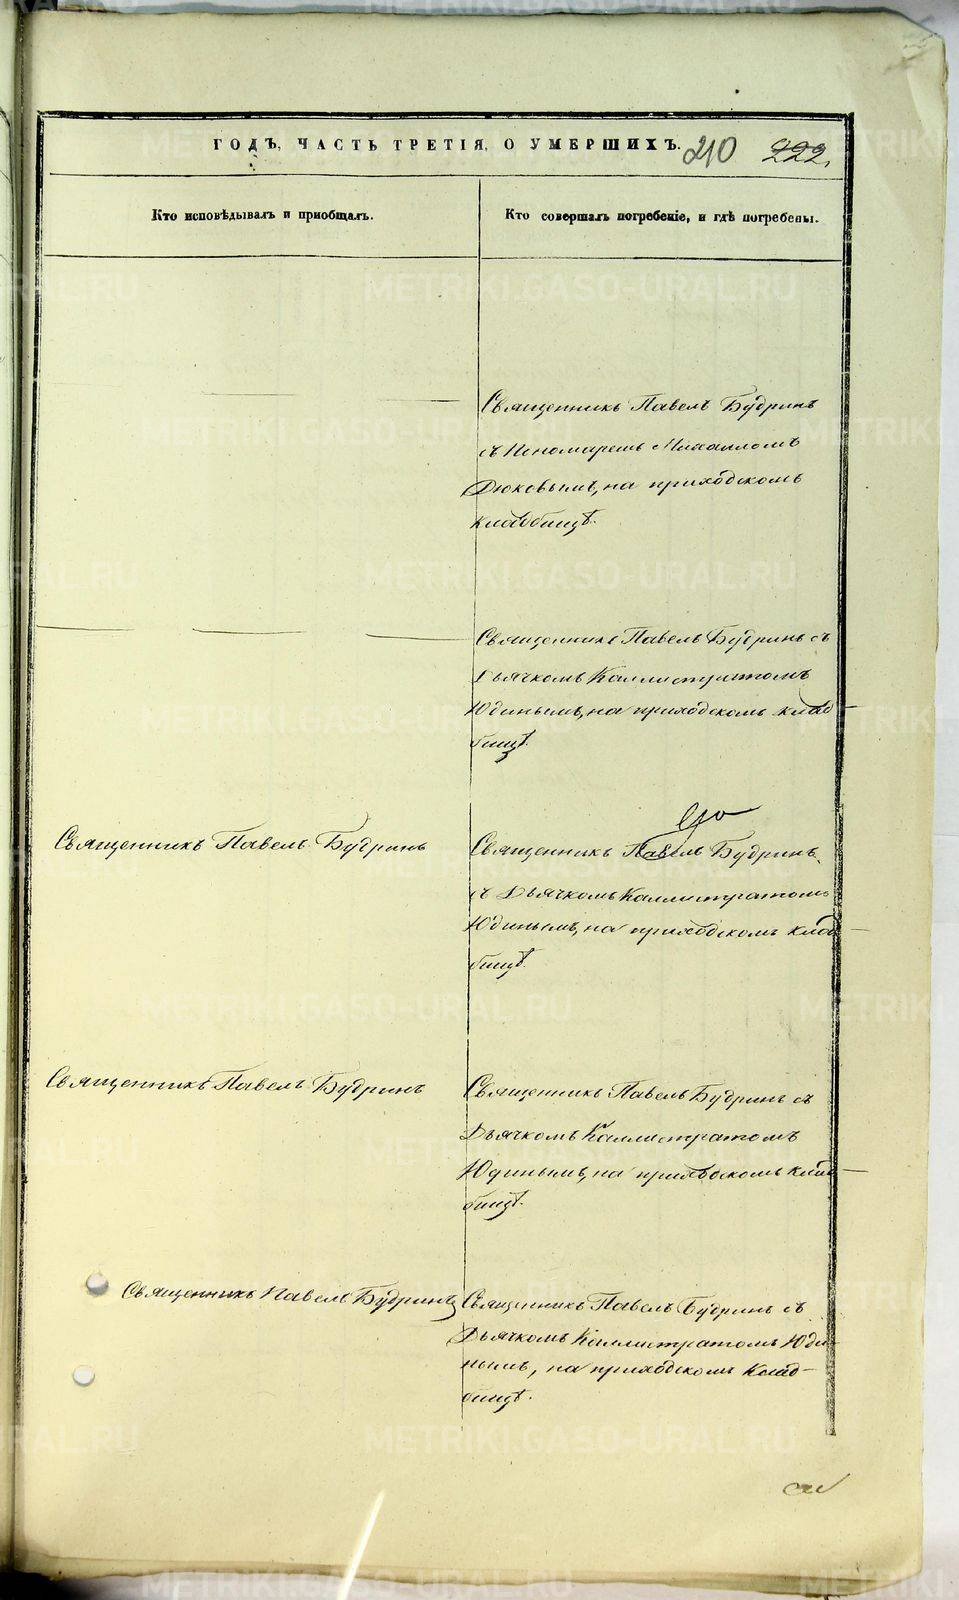 ГОДЪ, ЧАСТЬ ТРЕТІЯ, О УМЕРШИХЪ. 210 222.
Кто исповѣдывалъ и пріобщалъ.
Кто совершалъ погребеніе, и гдѣ погребены.
Священникъ Павелъ Будринъ
съ Пономаремъ Михаиломъ
Дюковымъ, на приходскомъ
кладбищѣ.
Священникъ Павелъ Будринъ съ
Дьячкомъ Каллистратомъ
Юдинымъ, на приходскомъ клад-
бищѣ.
Священникъ Павелъ Будринъ
Священникъ Павелъ Будринъ
съ Дьячкомъ Каллистратомъ
Юдинымъ, на приходскомъ клад-
бищѣ.
Священникъ Павелъ Будринъ
Священникъ Павелъ Будринъ съ
Дьячкомъ Каллистратомъ
Юдинымъ, на приходскомъ клад-
бищѣ.
Священникъ Павелъ Будринъ
Священникъ Павелъ Будринъ съ
Дьячкомъ Каллистратомъ Юди-
нымъ, на приходскомъ клад-
бищѣ.
METRIKI.GASO-URAL.RU